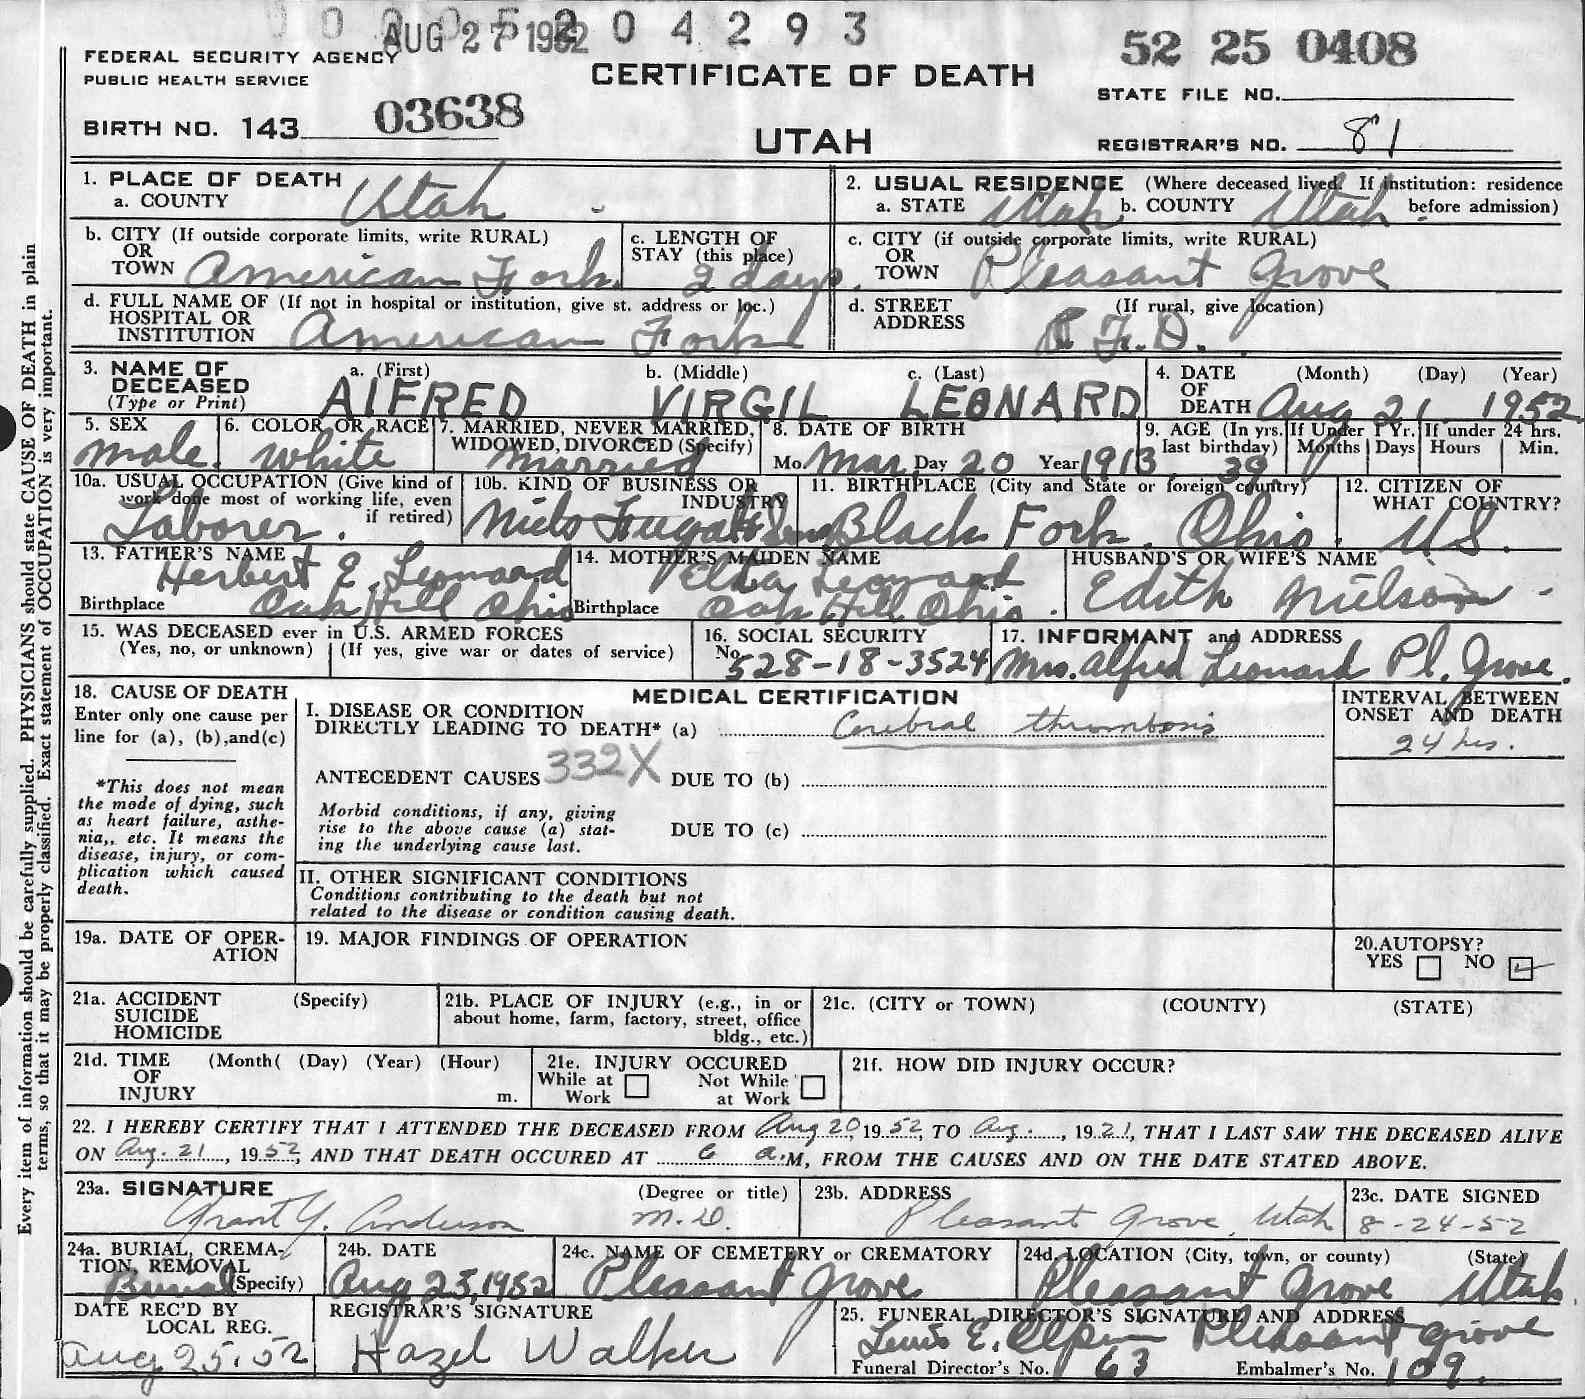 204293
AUG 27 1952
52 25 0408
FEDERAL SECURITY AGENCY
PUBLIC HEALTH SERVICE
CERTIFICATE OF DEATH
STATE FILE NO.
BIRTH NO. 143 03638
UTAH
REGISTRAR'S NO. 81
Every item of information should be carefully supplied. PHYSICIANS should state CAUSE OF DEATH in plain
terms, so that it may be properly classified. Exact statement of OCCUPATION is very important.
1. PLACE OF DEATH
a. COUNTY Utah
2. USUAL RESIDENCE (Where deceased lived. If institution: residence
before admission)
a. STATE Utah b. COUNTY Utah
b. CITY (If outside corporate limits, write RURAL)
OR
TOWN American Fork
c. LENGTH OF
STAY (this place)
2 days.
c. CITY (if outside corporate limits, write RURAL)
OR
TOWN Pleasant Grove
d. FULL NAME OF (If not in hospital or institution, give st. address or loc.)
HOSPITAL OR
INSTITUTION American Fork
d. STREET (If rural, give location)
ADDRESS R.F.D.
3. NAME OF a. (First) b. (Middle) c. (Last)
DECEASED
(Type or Print) AlFRED VIRGIL LEONARD
4. DATE (Month) (Day) (Year)
OF
DEATH Aug 21 1952
5. SEX
male.
6. COLOR OR RACE
white
7. MARRIED, NEVER MARRIED,
WIDOWED, DIVORCED (Specify)
married
8. DATE OF BIRTH
Mo. Mar. Day 20 Year 1913
9. AGE (In yrs. If Under 1 Yr. If under 24 hrs.
last birthday) Months Days Hours Min.
39
10a. USUAL OCCUPATION (Give kind of
work done most of working life, even
if retired)
Laborer.
10b. KIND OF BUSINESS OR
INDUSTRY
Niels
11. BIRTHPLACE (City and State or foreign country)
Black Fork. Ohio.
12. CITIZEN OF
WHAT COUNTRY?
U.S.
13. FATHER'S NAME
Herbert E. Leonard
Birthplace Oak Hill Ohio
14. MOTHER'S MAIDEN NAME
Leonard
Birthplace Oak Hill Ohio.
HUSBAND'S OR WIFE'S NAME
Edith Nielson
15. WAS DECEASED ever in U.S. ARMED FORCES
(Yes, no, or unknown) (If yes, give war or dates of service)
16. SOCIAL SECURITY
No. 528-18-3524
17. INFORMANT and ADDRESS
Mrs. Alfred Leonard Pl. Grove.
18. CAUSE OF DEATH
Enter only one cause per
line for (a), (b), and(c)
*This does not mean
the mode of dying, such
as heart failure, asthe-
nia,, etc. It means the
disease, injury, or com-
plication which caused
death.
MEDICAL CERTIFICATION
I. DISEASE OR CONDITION
DIRECTLY LEADING TO DEATH* (a) Cerebral thrombosis
ANTECEDENT CAUSES 332X DUE TO (b)
Morbid conditions, if any, giving
rise to the above cause (a) stat-
ing the underlying cause last.
DUE TO (c)
INTERVAL BETWEEN
ONSET AND DEATH
24 hrs.
II. OTHER SIGNIFICANT CONDITIONS
Conditions contributing to the death but not
related to the disease or condition causing death.
19a. DATE OF OPER-
ATION
19. MAJOR FINDINGS OF OPERATION
20. AUTOPSY?
YES NO
21a. ACCIDENT (Specify)
SUICIDE
HOMICIDE
21b. PLACE OF INJURY (e.g., in or
about home, farm, factory, street, office
bldg., etc.)
21c. (CITY or TOWN) (COUNTY) (STATE)
21d. TIME (Month( (Day) (Year) (Hour)
OF
INJURY m.
21e. INJURY OCCURED
While at Work
Not While at Work
21f. HOW DID INJURY OCCUR?
22. I HEREBY CERTIFY THAT I ATTENDED THE DECEASED FROM Aug 20, 1952, TO Aug., 1921, THAT I LAST SAW THE DECEASED ALIVE
ON Aug. 21, 1952, AND THAT DEATH OCCURED AT 6 a.M, FROM THE CAUSES AND ON THE DATE STATED ABOVE.
23a. SIGNATURE (Degree or title)
Grant Y. Anderson M.D.
23b. ADDRESS
Pleasant Grove, Utah
23c. DATE SIGNED
8-24-52
24a. BURIAL, CREMA-
TION, REMOVAL
(Specify) Burial
24b. DATE
Aug 25, 1952
24c. NAME OF CEMETERY or CREMATORY
Pleasant Grove
24d. LOCATION (City, town, or county) (State)
Pleasant Grove Utah
DATE REC'D BY
LOCAL REG.
Aug 25.52
REGISTRAR'S SIGNATURE
Hazel Walker
25. FUNERAL DIRECTOR'S SIGNATURE AND ADDRESS
E. Pleasant grove
Funeral Director's No. 63 Embalmer's No. 109.